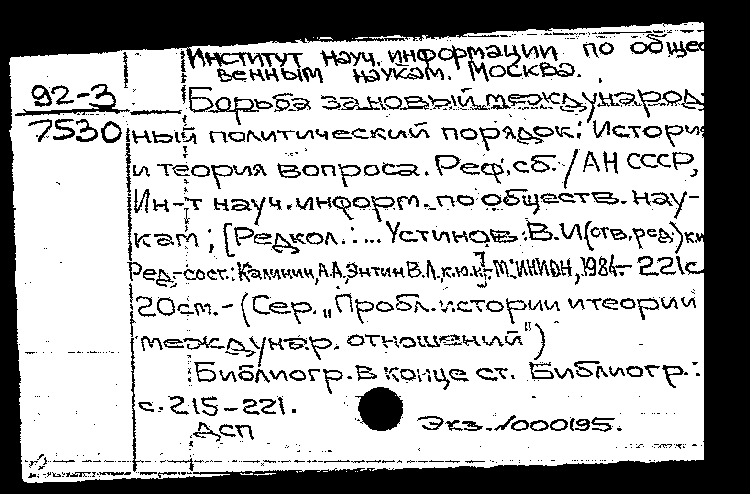 Институт науч. информации по общес
венным наукам. Москва.
92-3
Борьба за новый международ
7530
ный политический порядок: Истори
и теория вопроса. Реф. сб. / АН СССР,
Ин-т науч. информ. по обществ. нау-
кам; [Редкол.: ... Устинов В.И (отв. ред.)
Ред.-сост.: Калинин А.А, Энтин В.Л, к.ю.н]. - М: ИНИОН, 1984. - 221с
20см. - (Сер. „Пробл. истории и теории
междунар. отношений")
Библиогр. в конце ст. Библиогр.:
с. 215-221.
ДСП
Экз. №000195.